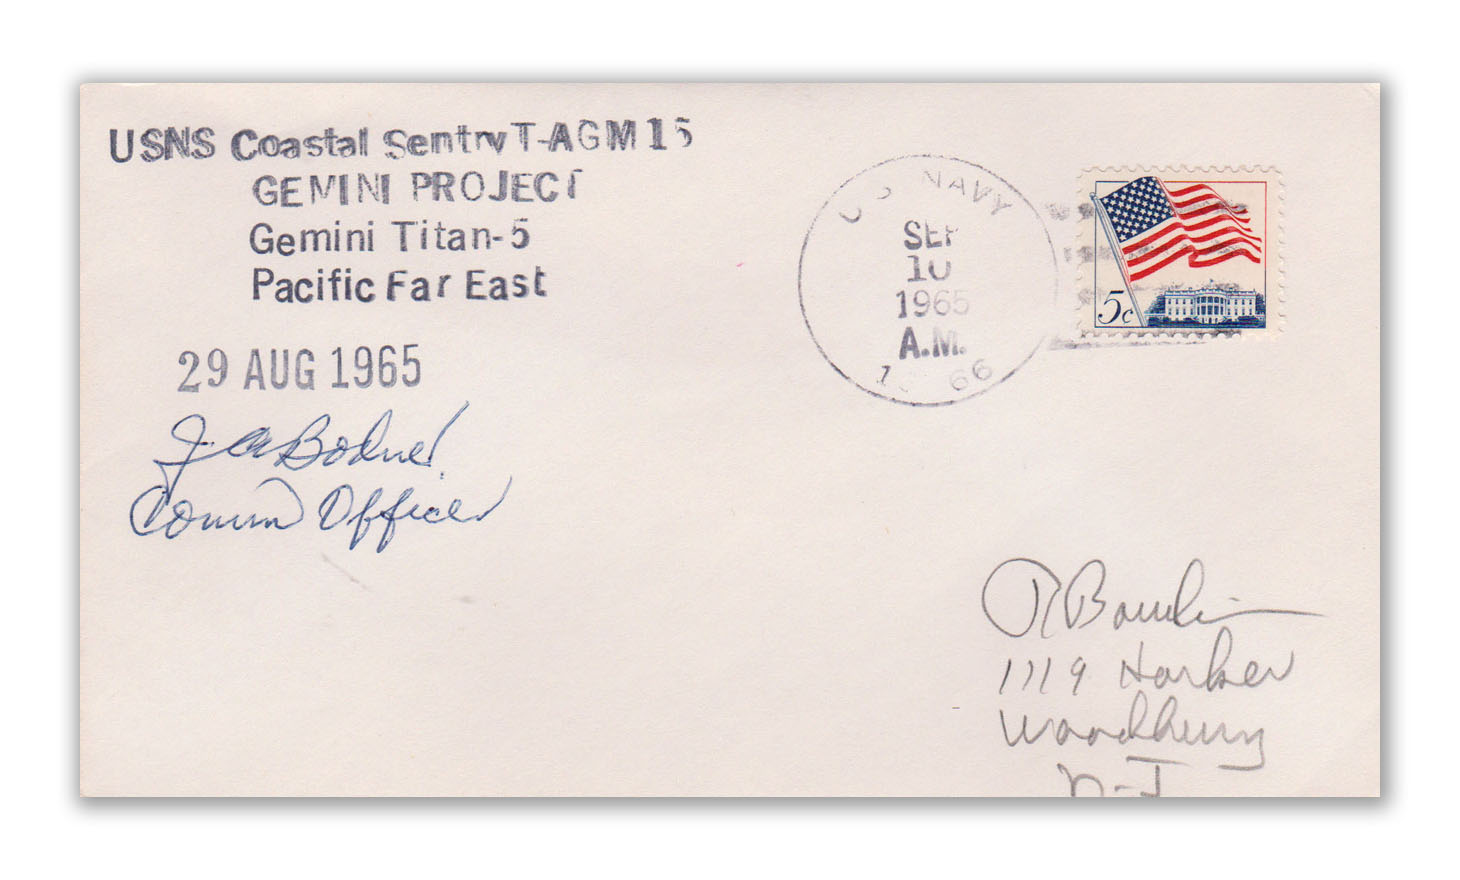 USNS Coastal Sentry T-AGM 15
GEMINI PROJECT
Gemini Titan-5
Pacific Far East
29 AUG 1965
J A Bodner
Comm Officer
U.S. NAVY
SEP
10
1965
A.M.
66
5c
R Bowlin
1119 Harker
Woodbury
N-J